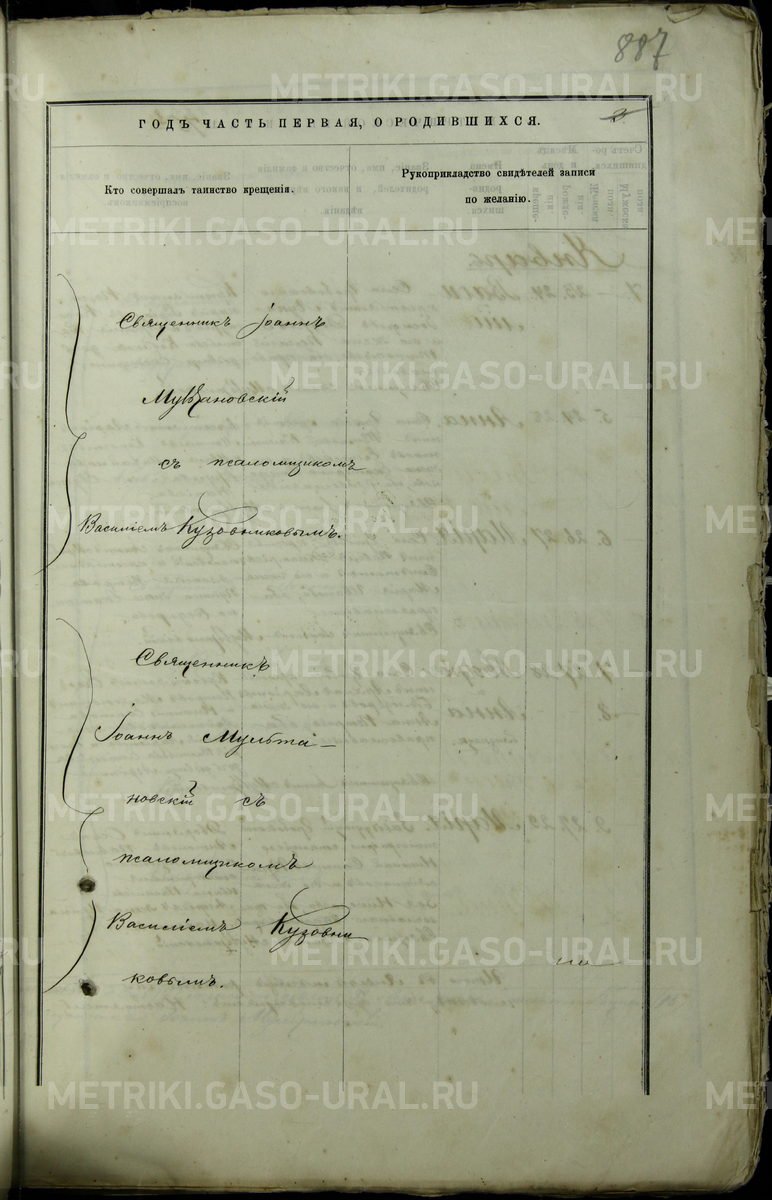 887
ГОДЪ ЧАСТЬ ПЕРВАЯ, О РОДИВШИХСЯ.
3.
Кто совершалъ таинство крещенія.
Рукоприкладство свидѣтелей записи
по желанію.
Священникъ Іоаннъ
Мультановскій
съ псаломщикомъ
Василіемъ Кузовниковымъ.
Священникъ
Іоаннъ Мульта-
новскій съ
псаломщикомъ
Василіемъ Кузовни
ковымъ.
METRIKI.GASO-URAL.RU